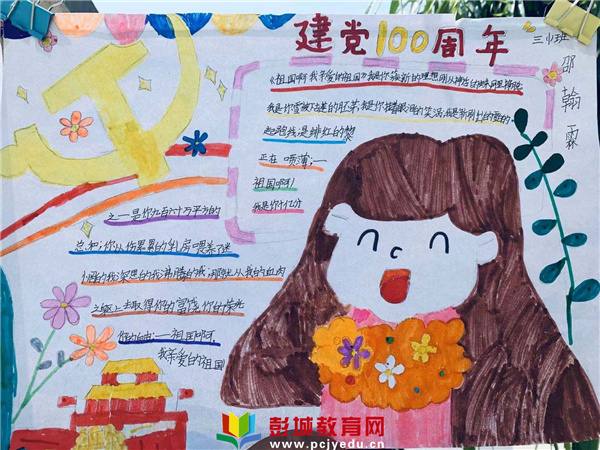 建党100周年
三(1)班
邵翰霖
《祖国啊我亲爱的祖国》
我是你雪被下古莲的胚芽;我是你挂着眼泪的笑涡;我是新刷出的雪白的
起跑线;是绯红的黎
正在喷薄;一
祖国啊!
我是你什亿分
之一是你九百六十万平方的
总和;你以伤累累的乳房喂养了迷
的我深思的我沸腾的我,那就从我的血肉
之躯上去取得你的富饶你的荣光
你的自由;一祖国啊
我亲爱的祖国
彭城教育网
www.pcjyedu.cn